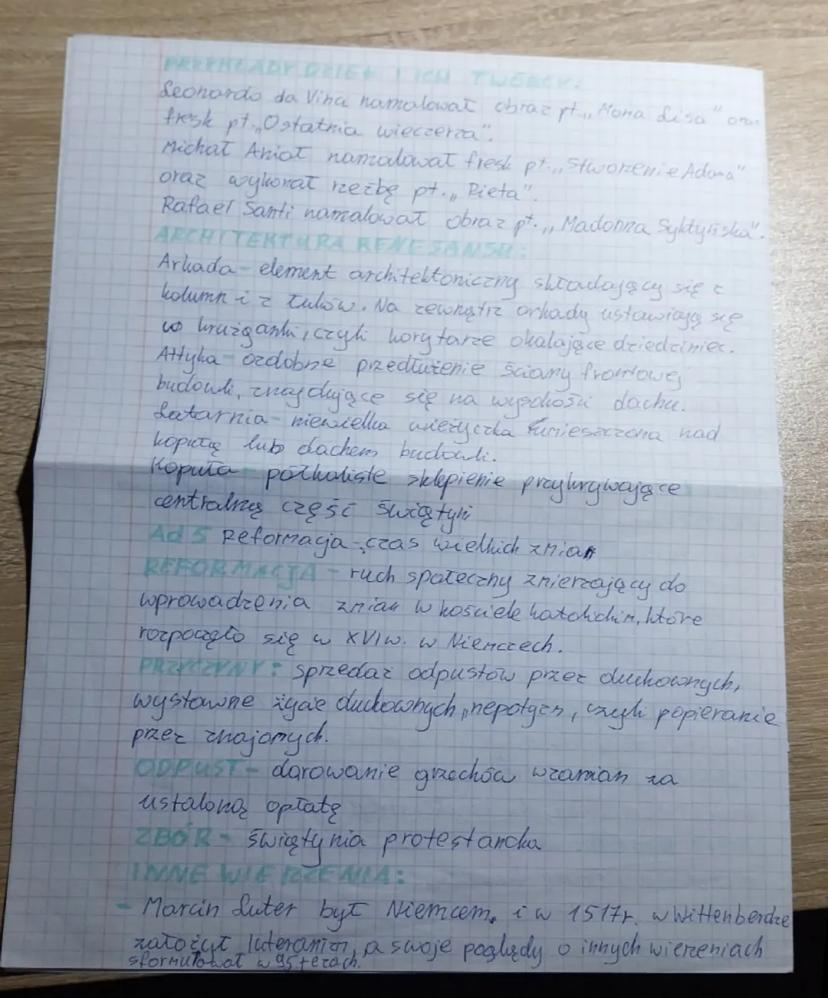 PRZYKŁADY DZIEŁ I ICH TWÓRCY:
Leonardo da Vinci namalował obraz pt. „Mona Lisa" oraz
fresk pt. „Ostatnia wieczerza".
Michał Anioł namalował fresk pt. „Stworzenie Adama"
oraz wykonał rzeźbę pt. „Pieta".
Rafael Santi namalował obraz pt. „Madonna Sykstyńska".
ARCHITEKTURA RENESANSU:
Arkada - element architektoniczny składający się z
kolumn i z łuków. Na zewnątrz arkady ustawiają się
w krużganki, czyli korytarze okalające dziedziniec.
Attyka - ozdobne przedłużenie ściany frontowej
budowli, znajdujące się na wysokości dachu.
Latarnia - niewielka wieżyczka umieszczona nad
kopułą lub dachem budowli.
Kopuła - półkoliste sklepienie przykrywające
centralną część świątyni
Ad 5 Reformacja - czas wielkich zmian
REFORMACJA - ruch społeczny zmierzający do
wprowadzenia zmian w kościele katolickim, które
rozpoczęło się w XVI w. w Niemczech.
PRZYCZYNY: sprzedaż odpustów przez duchownych,
wystawne życie duchownych, nepotyzm, czyli popieranie
przez znajomych.
ODPUST - darowanie grzechów wzamian za
ustaloną opłatę
ZBÓR - świątynia protestancka
INNE WIERZENIA:
- Marcin Luter był Niemcem, i w 1517r. w Wittenberdze
założył luteranizm, a swoje poglądy o innych wierzeniach
sformułował w 95 tezach.